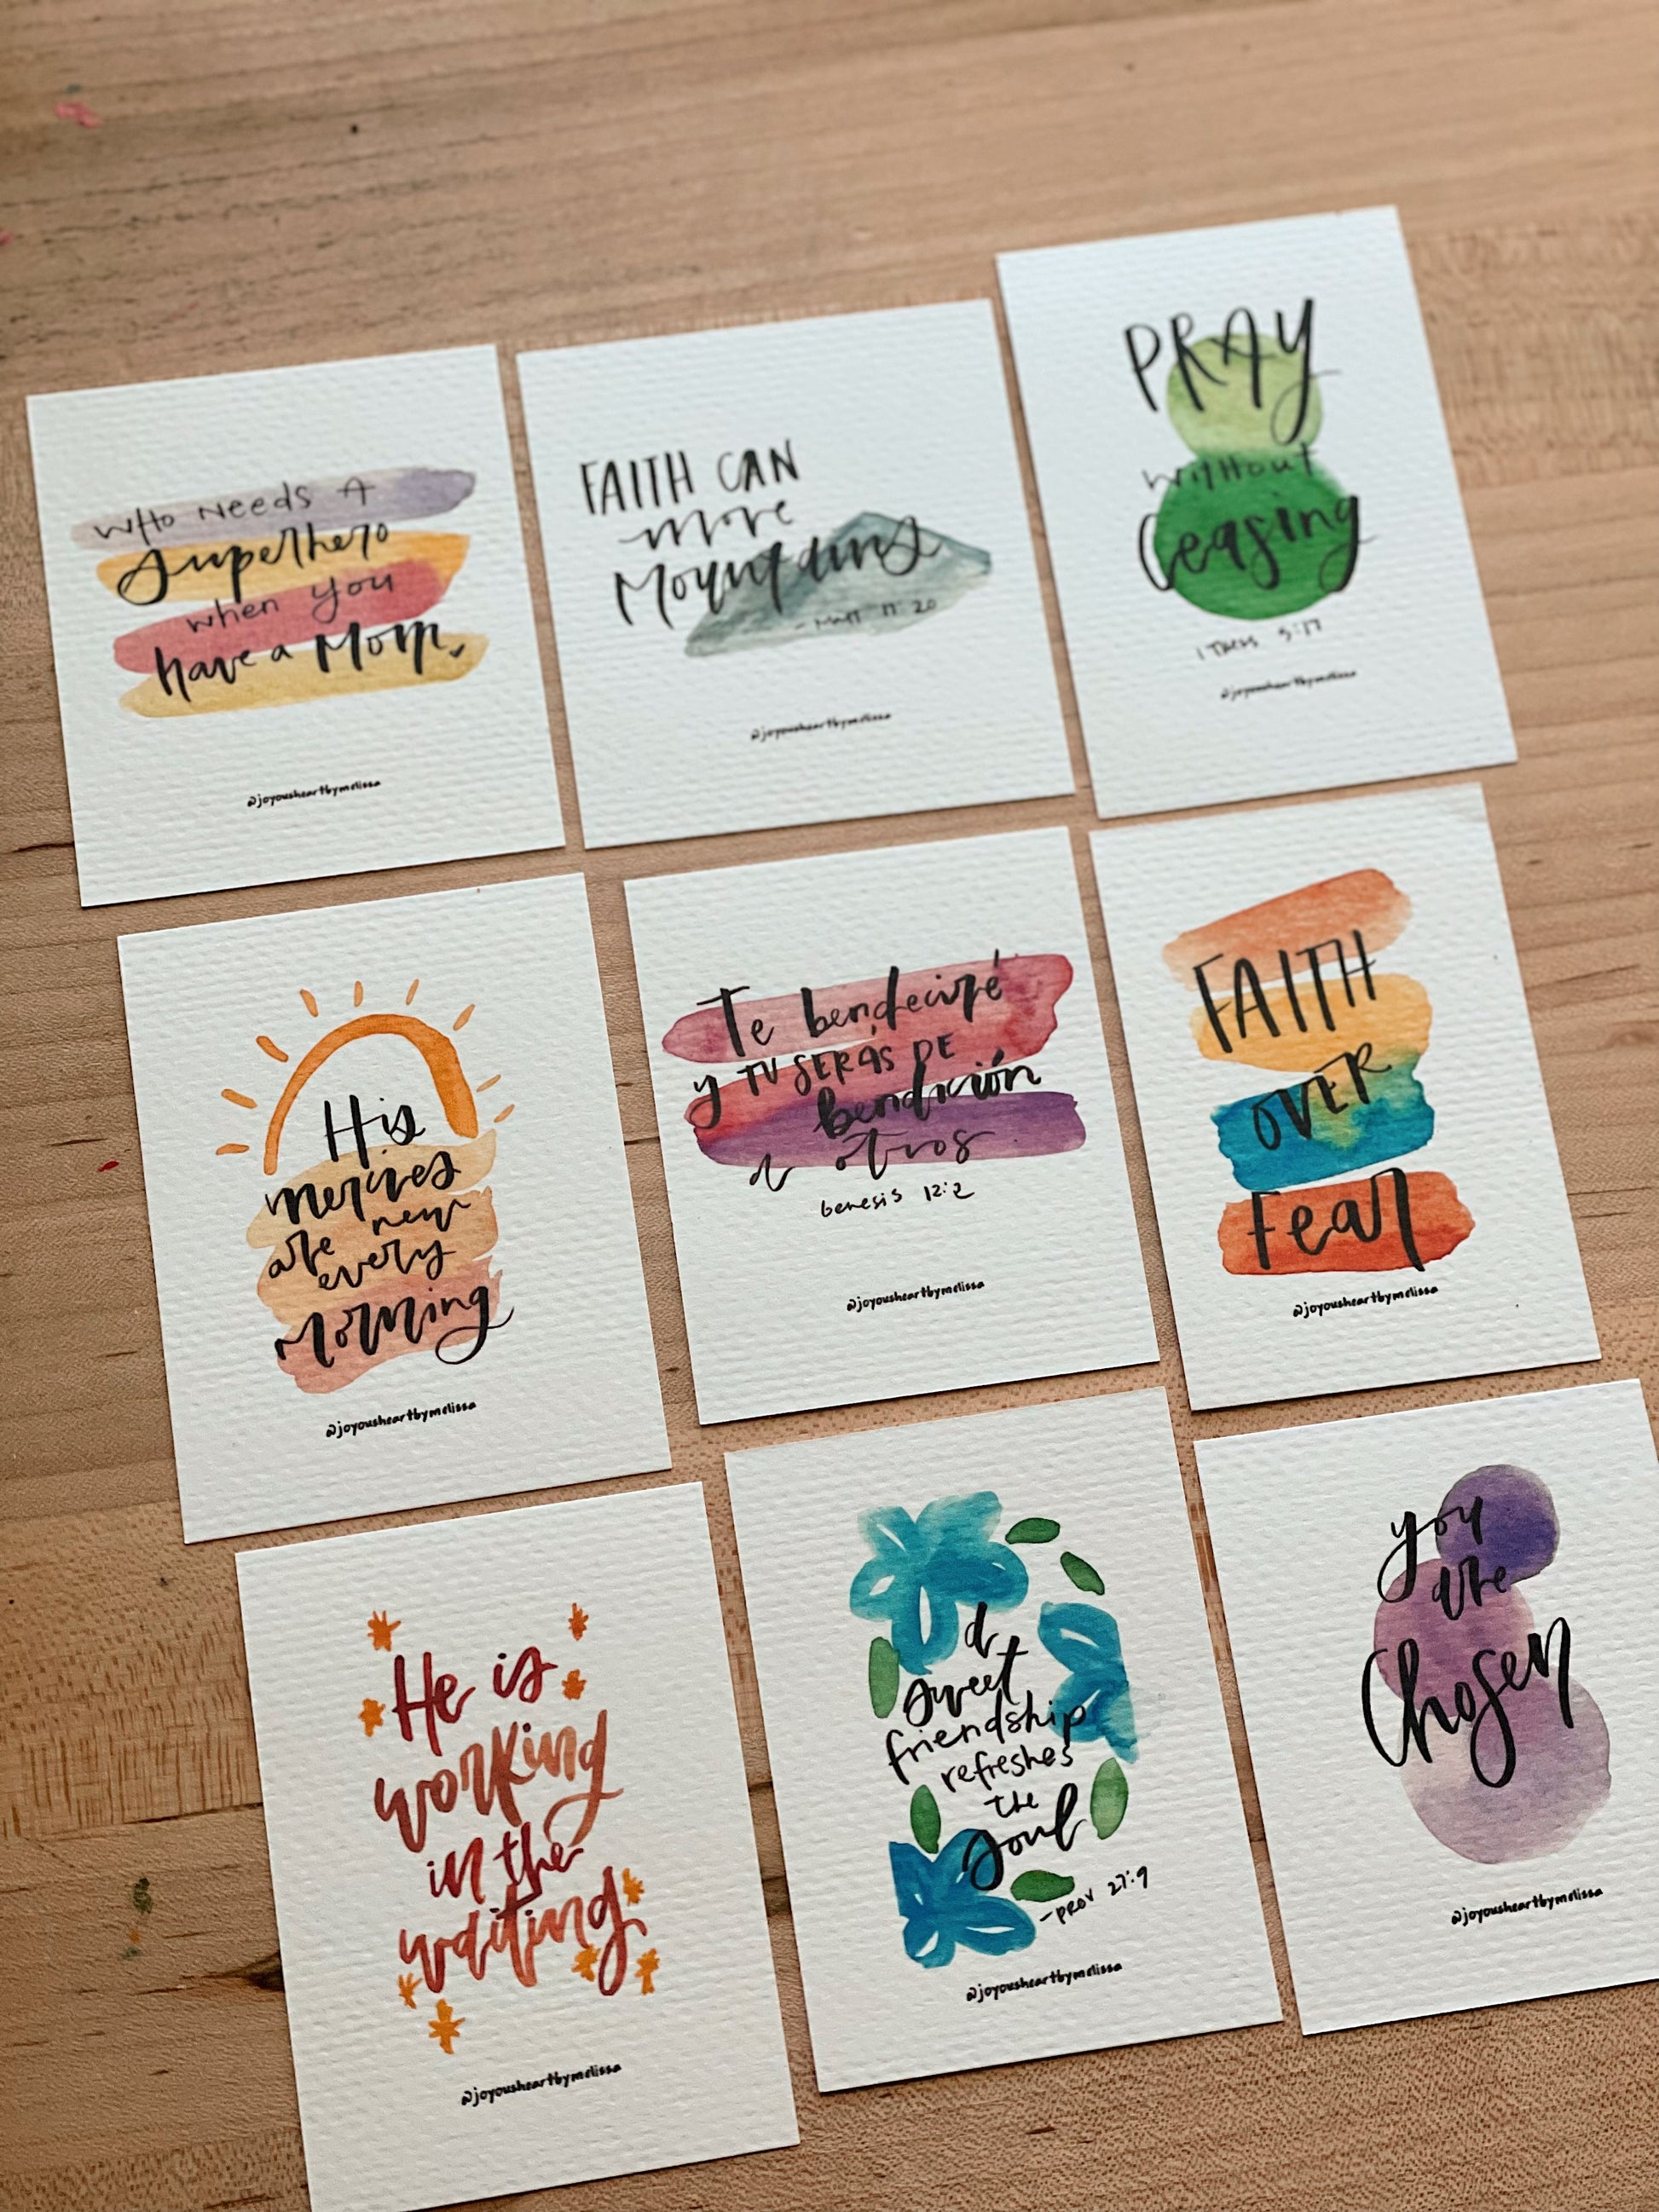 WHO NEEDS A
Superhero
when you
have a Mom
@joyousheartbymelissa
FAITH CAN
move
Mountains
- Matt 17:20
@joyousheartbymelissa
PRAY
without
Ceasing
1 Thess 5:17
@joyousheartbymelissa
His
mercies
are new
every
Morning
@joyousheartbymelissa
Te bendeciré
y TU SERÁS DE
bendición
a otros
Genesis 12:2
@joyousheartbymelissa
FAITH
OVER
Fear
@joyousheartbymelissa
He is
working
in the
waiting
@joyousheartbymelissa
a
sweet
friendship
refreshes
the
soul
- prov 27:9
@joyousheartbymelissa
you
are
Chosen
@joyousheartbymelissa